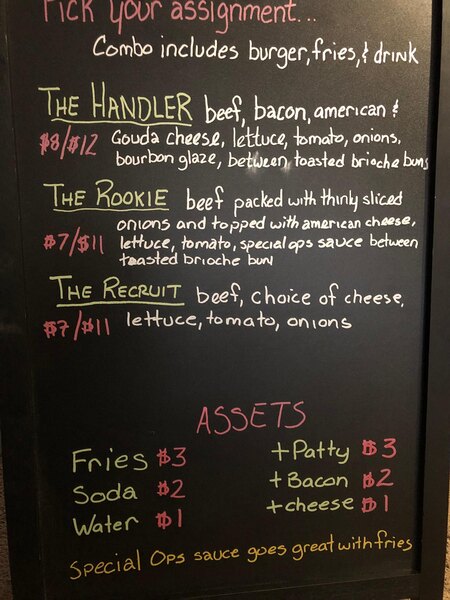 Pick your assignment...
Combo includes burger, fries, & drink
THE HANDLER beef, bacon, american &
$8/$12 Gouda cheese, lettuce, tomato, onions,
bourbon glaze, between toasted brioche buns
THE ROOKIE beef packed with thinly sliced
onions and topped with american cheese,
$7/$11 lettuce, tomato, special ops sauce between
toasted brioche buns
THE RECRUIT beef, choice of cheese,
$7/$11 lettuce, tomato, onions
ASSETS
Fries $3 +Patty $3
Soda $2 +Bacon $2
Water $1 +cheese $1
Special Ops sauce goes great with fries